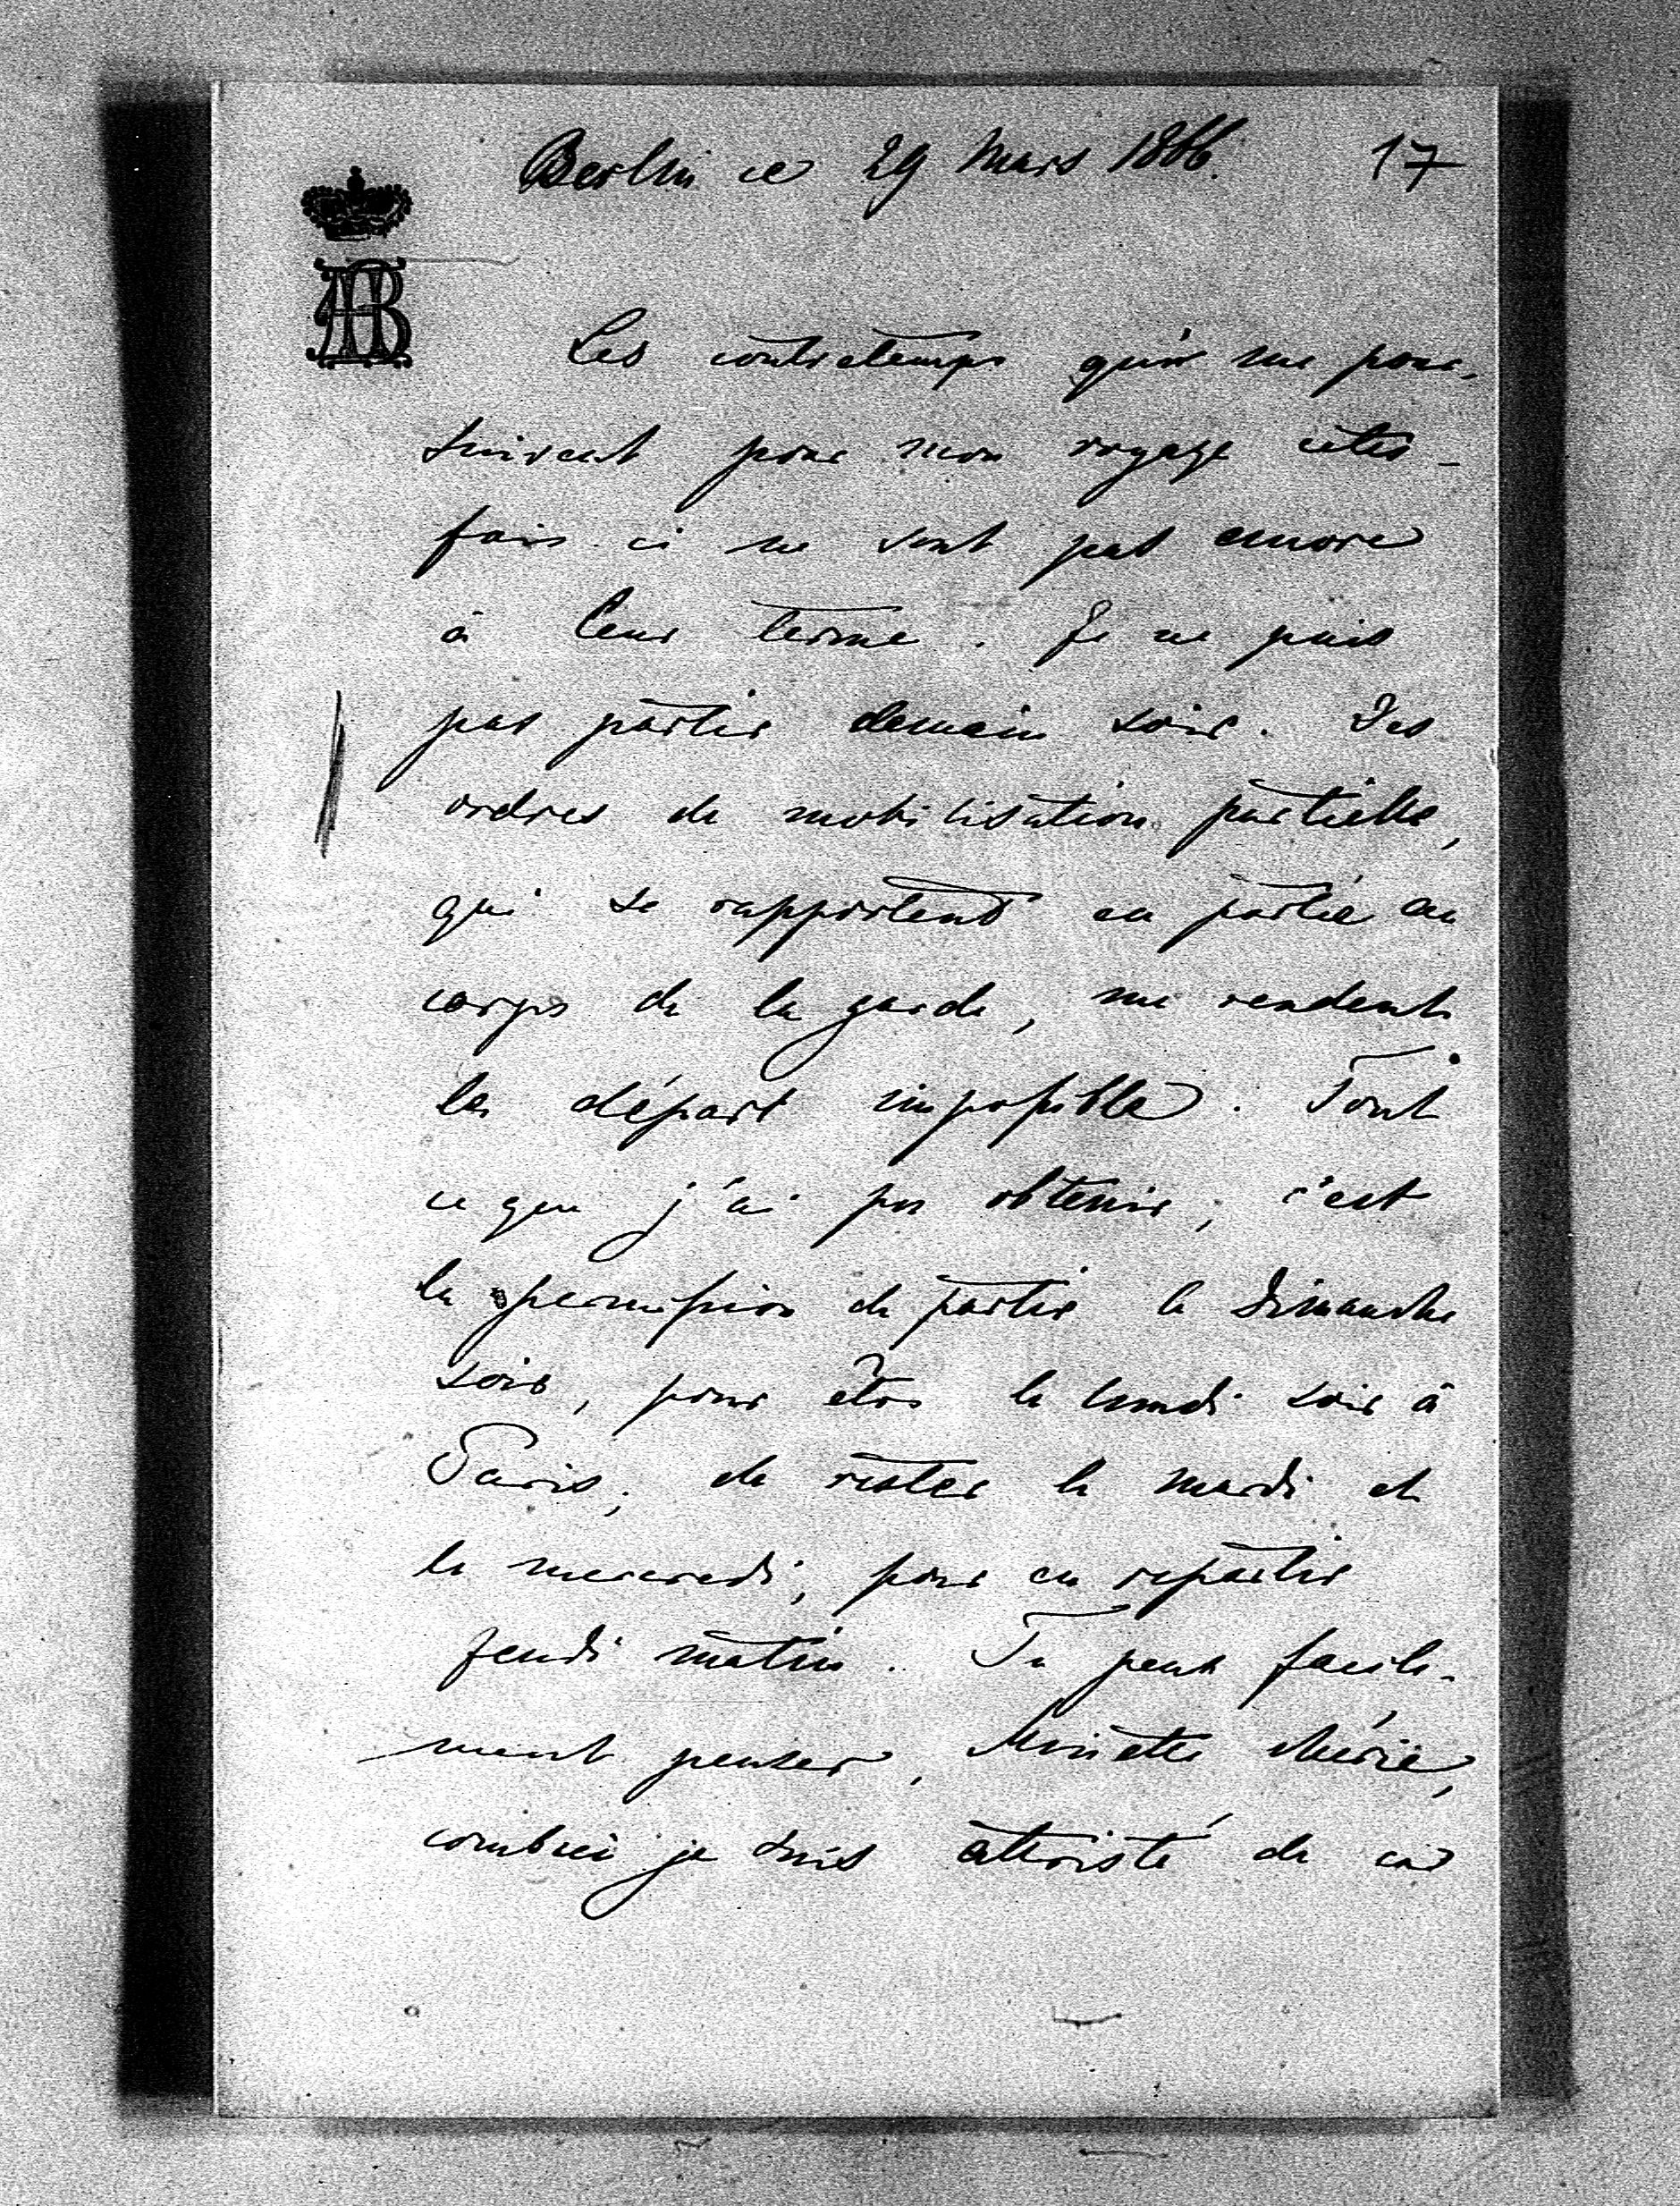 Berlin ce 29 Mars 1866. 17
AB
Les contretemps qui me pour-
suivent pour mon voyage cette
fois ci ne sont pas encore
à leur terme. Je ne puis
pas partir demain soir. Des
ordres de mobilisation partielle,
qui se rapportent en partie au
corps de la garde, me rendent
le départ impossible. Tout
ce que j'ai pu obtenir, c'est
la permission de partir le Dimanche
soir, pour être le lundi soir à
Paris, de rester le mardi et
le mercredi, pour en repartir
jeudi matin. Tu peux facile-
ment penser, Minette chérie,
combien je suis attristé de ce